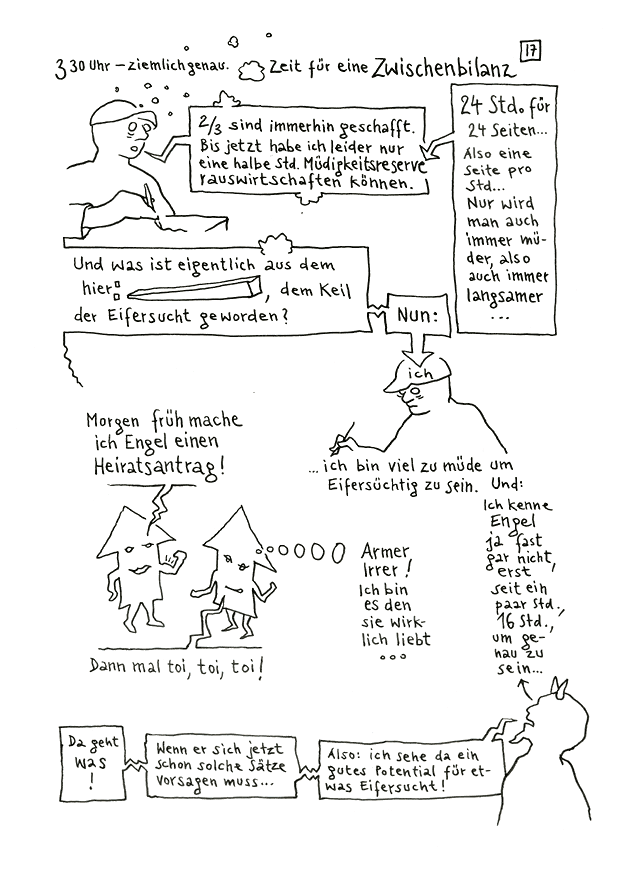 17
3 30 Uhr – ziemlich genau. Zeit für eine Zwischenbilanz
2/3 sind immerhin geschafft.
Bis jetzt habe ich leider nur
eine halbe Std. Müdigkeitsreserve
rauswirtschaften können.
24 Std. für
24 Seiten...
Also eine
Seite pro
Std...
Nur wird
man auch
immer mü-
der, also
auch immer
langsamer
...
Und was ist eigentlich aus dem
hier: , dem Keil
der Eifersucht geworden?
Nun:
ich
... ich bin viel zu müde um
Eifersüchtig zu sein.
Und:
Ich kenne
Engel
ja fast
gar nicht,
erst
seit ein
paar Std.,
16 Std.,
um ge-
nau zu
sein...
Morgen früh mache
ich Engel einen
Heiratsantrag!
Armer
Irrer!
Ich bin
es den
sie wirk-
lich liebt
...
Dann mal toi, toi, toi!
Da geht
was
!
Wenn er sich jetzt
schon solche Sätze
vorsagen muss...
Also: ich sehe da ein
gutes Potential für et-
was Eifersucht!